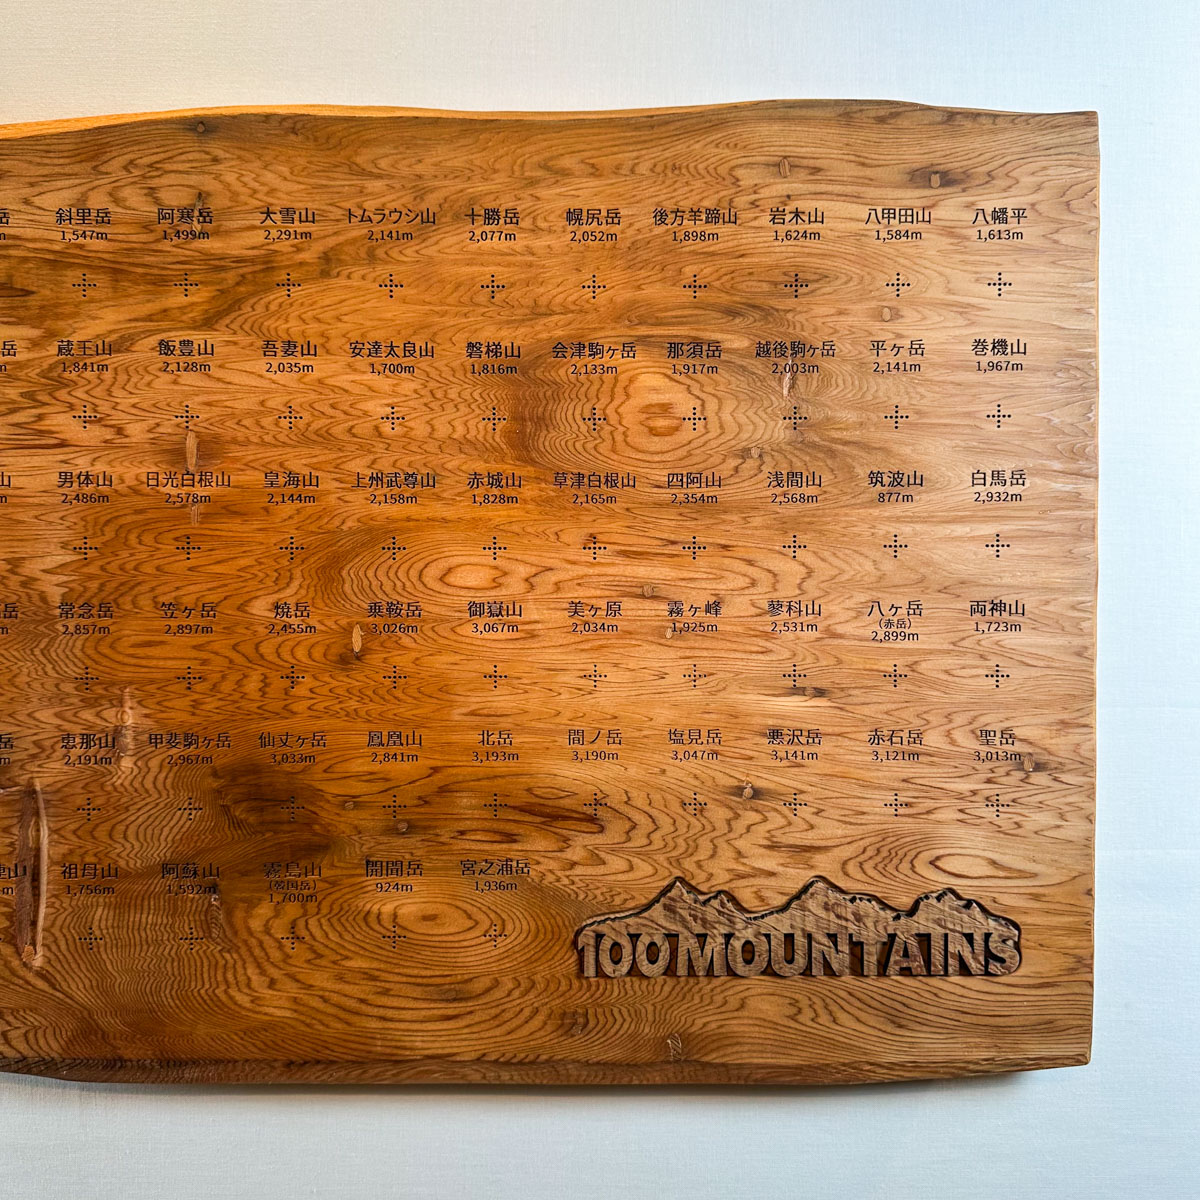 岳 斜里岳 阿寒岳 大雪山 トムラウシ山 十勝岳 幌尻岳 後方羊蹄山 岩木山 八甲田山 八幡平
m 1,547m 1,499m 2,291m 2,141m 2,077m 2,052m 1,898m 1,624m 1,584m 1,613m
岳 蔵王山 飯豊山 吾妻山 安達太良山 磐梯山 会津駒ヶ岳 那須岳 越後駒ヶ岳 平ヶ岳 巻機山
m 1,841m 2,128m 2,035m 1,700m 1,816m 2,133m 1,917m 2,003m 2,141m 1,967m
山 男体山 日光白根山 皇海山 上州武尊山 赤城山 草津白根山 四阿山 浅間山 筑波山 白馬岳
m 2,486m 2,578m 2,144m 2,158m 1,828m 2,165m 2,354m 2,568m 877m 2,932m
岳 常念岳 笠ヶ岳 焼岳 乗鞍岳 御嶽山 美ヶ原 霧ヶ峰 蓼科山 八ヶ岳 両神山
(赤岳)
m 2,857m 2,897m 2,455m 3,026m 3,067m 2,034m 1,925m 2,531m 2,899m 1,723m
岳 恵那山 甲斐駒ヶ岳 仙丈ヶ岳 鳳凰山 北岳 間ノ岳 塩見岳 悪沢岳 赤石岳 聖岳
m 2,191m 2,967m 3,033m 2,841m 3,193m 3,190m 3,047m 3,141m 3,121m 3,013m
山 祖母山 阿蘇山 霧島山 開聞岳 宮之浦岳
(韓国岳)
m 1,756m 1,592m 1,700m 924m 1,936m
100MOUNTAINS